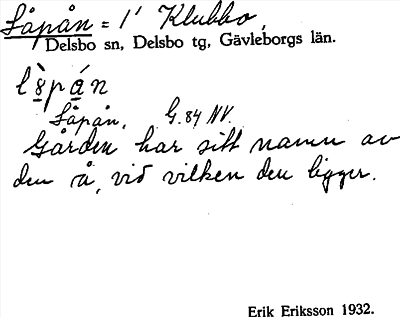 Såpån = 1' Klubbo,
Delsbo sn, Delsbo tg, Gävleborgs län.
Såpån. G. 84 NV.
Gården har sitt namn av
den å, vid vilken den ligger.
Erik Eriksson 1932.